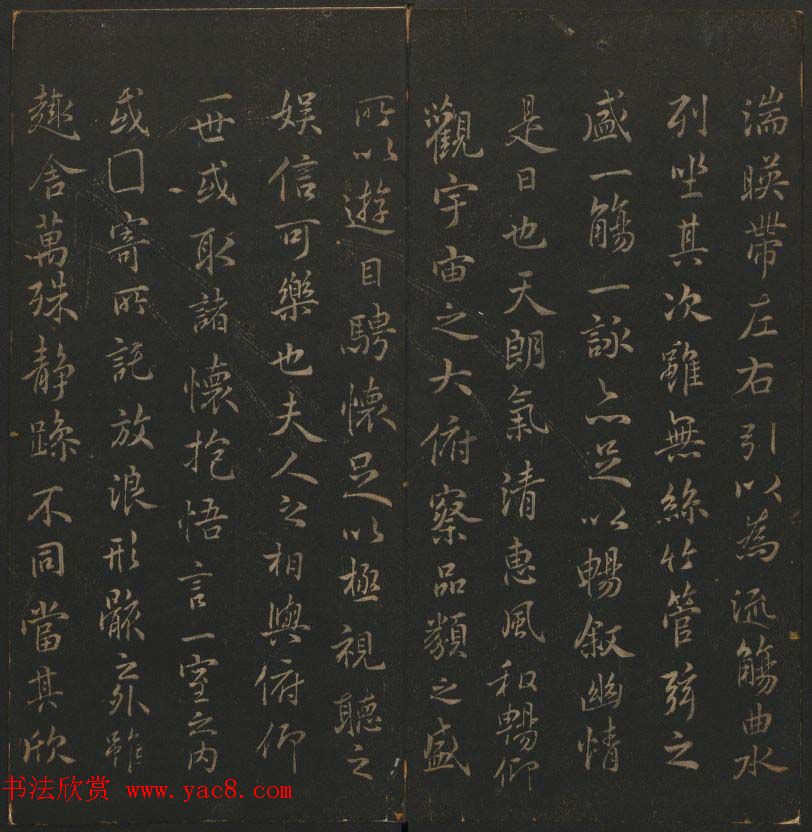 湍暎帶左右引以為流觴曲水
列坐其次雖無絲竹管弦之
盛一觴一詠亦足以暢叙幽情
是日也天朗氣清惠風和暢仰
觀宇宙之大俯察品類之盛
所以遊目騁懷足以極視聽之
娛信可樂也夫人之相與俯仰
一世或取諸懷抱悟言一室之內
或囗寄所託放浪形骸之外雖
趣舍萬殊静躁不同當其欣
书法欣赏 www.yac8.com